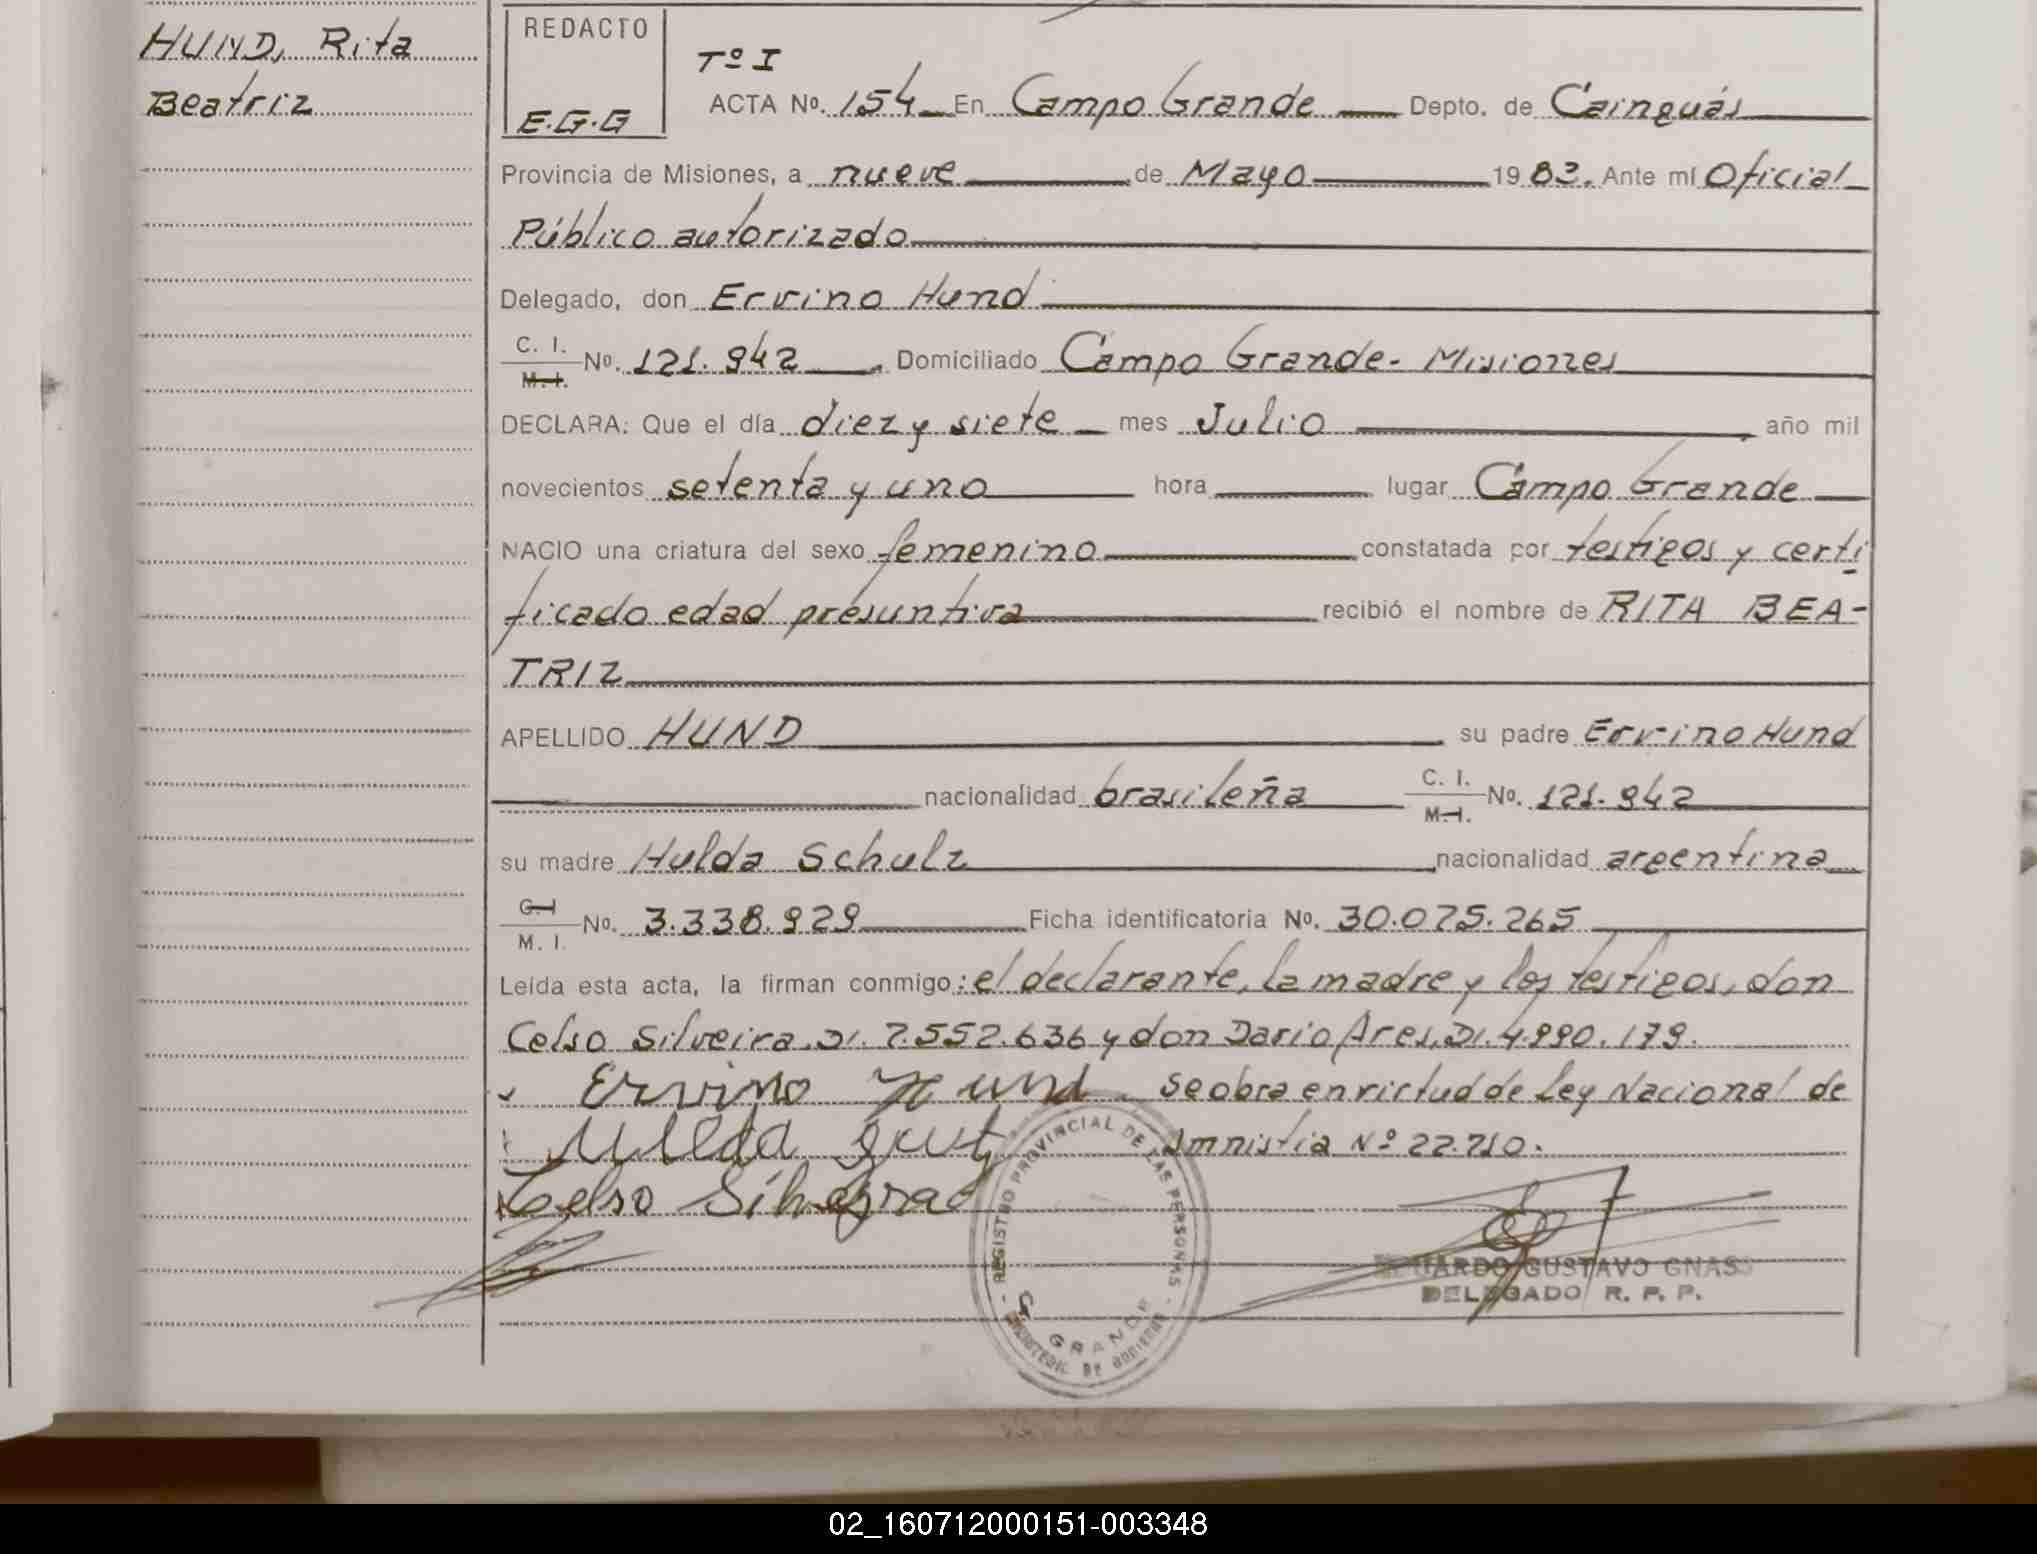 HUND, Rita
Beatriz
REDACTO
E.G.G
Tº I
ACTA Nº. 154 En Campo Grande Depto. de Cainguás
Provincia de Misiones, a nueve de Mayo 1983. Ante mí Oficial
Público autorizado
Delegado, don Ervino Hund
C. I.
M. I. Nº. 121.942. Domiciliado Campo Grande - Misiones
DECLARA: Que el día diez y siete mes Julio año mil
novecientos setenta y uno hora lugar Campo Grande
NACIO una criatura del sexo femenino constatada por testigos y certi
ficado edad presuntiva recibió el nombre de RITA BEA-
TRIZ
APELLIDO HUND su padre Ervino Hund
nacionalidad brasileña C. I.
M. I. Nº. 121.942
su madre Hulda Schulz nacionalidad argentina
C. I
M. I. Nº. 3.338.929 Ficha identificatoria Nº. 30.075.265
Leída esta acta, la firman conmigo: el declarante, la madre y los testigos, don
Celso Silveira, DI. 7.552.636 y don Dario Ares, DI. 4.990.179.
Ervino Hund Se obra en virtud de Ley Nacional de
Amnistia Nº 22.710.
Celso
REGISTRO PROVINCIAL DE LAS PERSONAS
GRANDE
EDUARDO GUSTAVO GNASS
DELEGADO R. P. P.
02_160712000151-003348